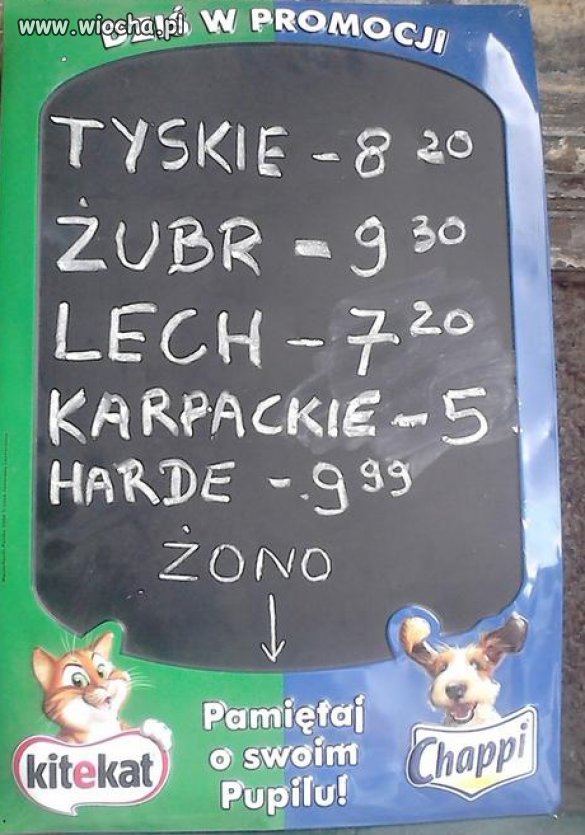 www.wiocha.pl
DZIŚ W PROMOCJI
TYSKIE - 8 20
ŻUBR - 9 30
LECH - 7 20
KARPACKIE - 5
HARDE - 9 99
ŻONO
↓
Pamiętaj
o swoim
Pupilu!
kitekat
Chappi